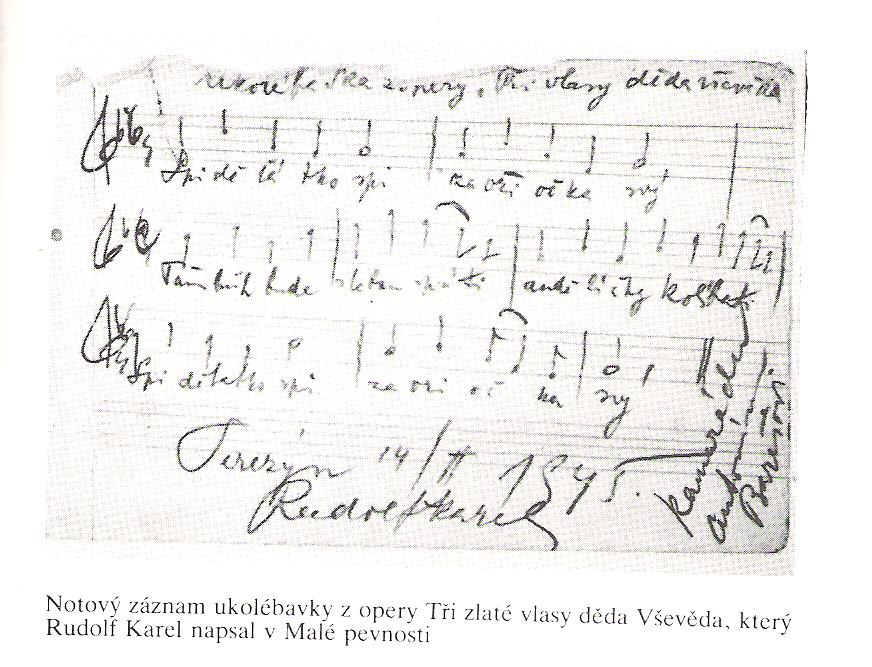 Ukolébavka z opery „Tři vlasy děda vševěda
Spi dě ťá tko spi zavři očka svý
Pánbůh bude s tebou spáti andělíčky kolíbati
Spi děťátko spi zavři oč ka svý
Terezín 14/II 1945.
Rudolf Karel
kamarádu
Antonínu
Burešovi.
Notový záznam ukolébavky z opery Tři zlaté vlasy děda Vševěda, který
Rudolf Karel napsal v Malé pevnosti